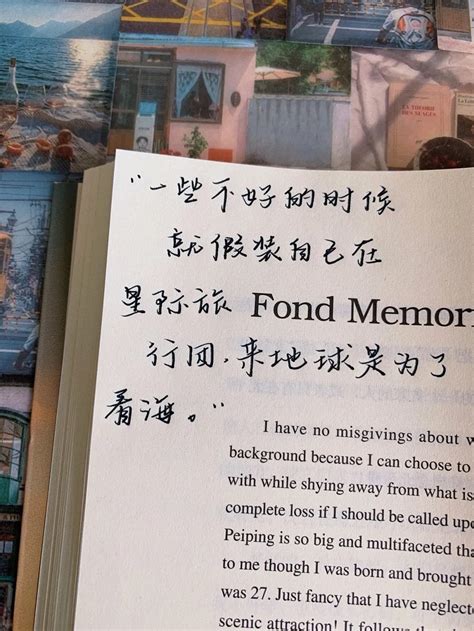 LA THÉORIE
DES NUAGES
"一些不好的时候
就假装自己在
星际旅 Fond Memor
行团,来地球是为了
看海。"
I have no misgivings about w
background because I can choose to
with while shying away from what is
complete loss if I should be called up
Peiping is so big and multifaceted tha
to me though I was born and brought
was 27. Just fancy that I have neglect
scenic attraction! It follows